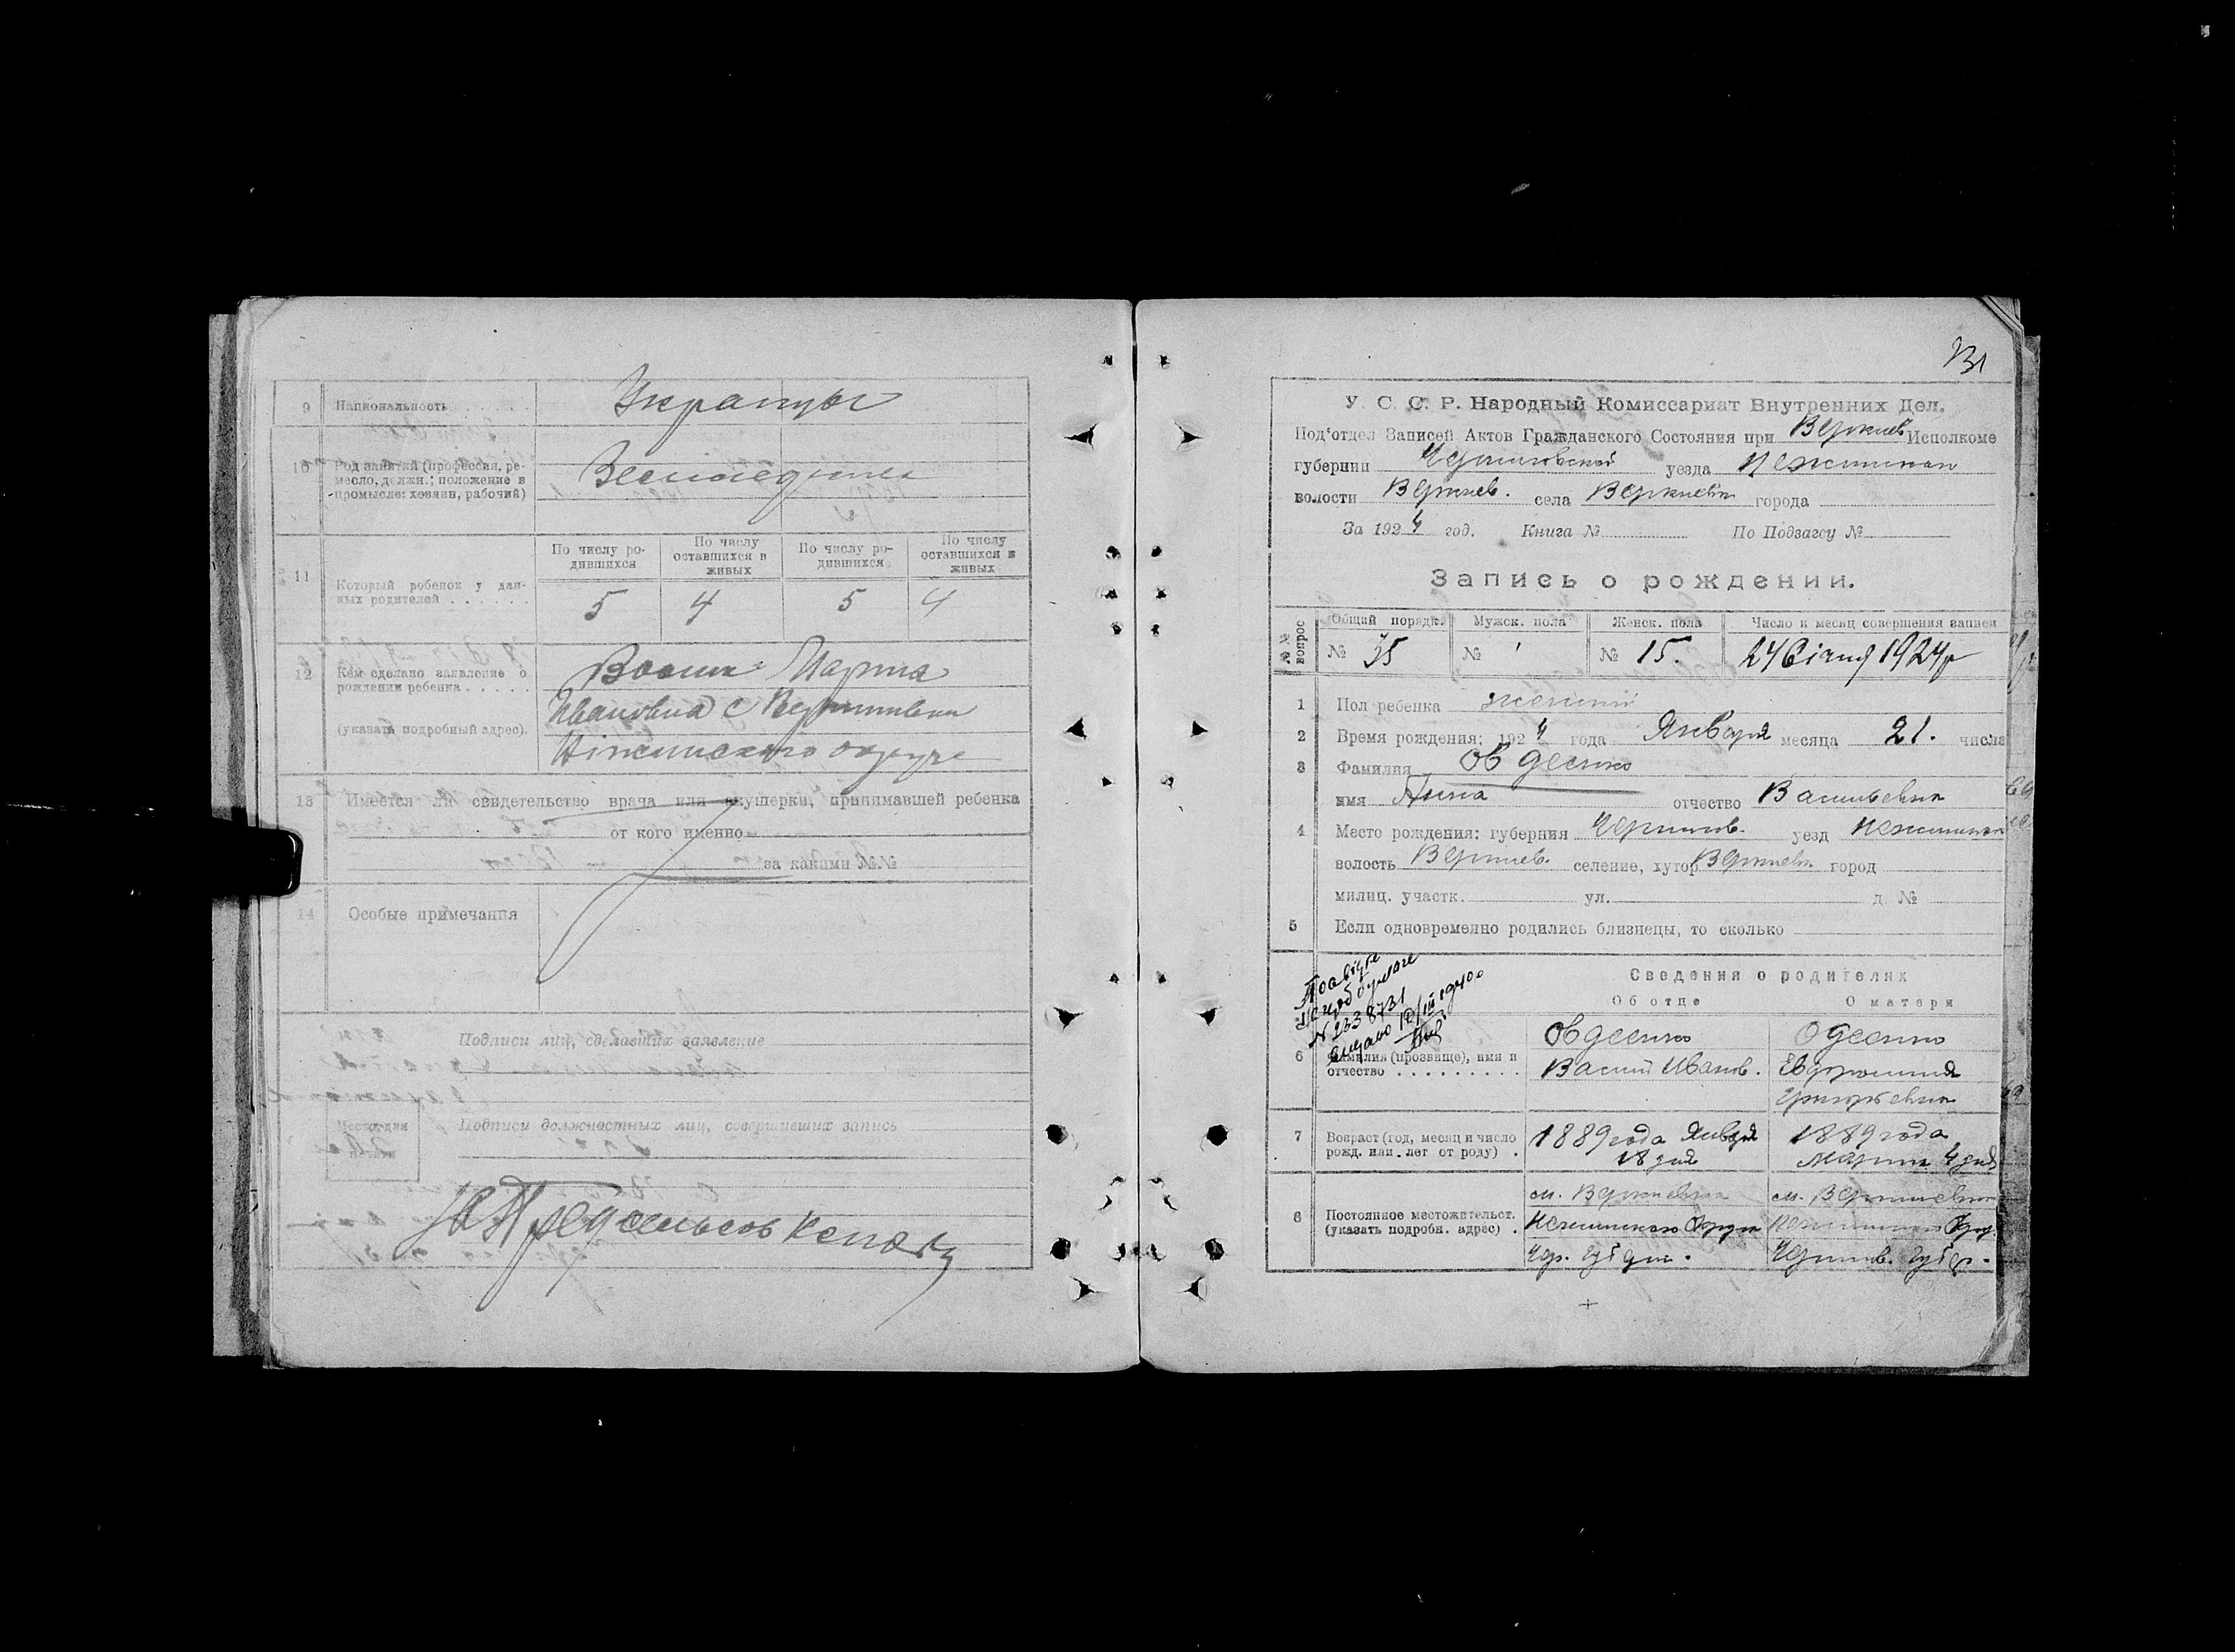 9 Национальность Украинцы
10 Род занятий (профессия, ре-
месло, должн.; положение в
промысле: хозяин, рабочий)
11 Который ребенок у дан-
ных родителей
По числу ро-
дившихся
По числу
оставшихся в
живых
По числу ро-
дившихся
По числу
оставшихся в
живых
5 4 5 4
12 Кем сделано заявление о
рождении ребенка
(указать подробный адрес).
Мария
Ивановна с
округа
13 Имеется ли свидетельство врача или акушерки, принимавшей ребенка
от кого именно
за какими №№
14 Особые примечания
Подписи лиц, сделавших заявление
Подписи должностных лиц, совершивших запись
131
У. С. С. Р. Народный Комиссариат Внутренних Дел.
Под'отдел Записей Актов Гражданского Состояния при Веркиев Исполкоме
губернии Черниговской уезда
волости Веркиев. села Веркиевки города
За 1924 год. Книга № По Подзагсу №
Запись о рождении.
№№ вопрос
Общий порядк. Мужск. пола Женск. пола Число и месяц совершения записи
№ 35 № № 15. 24 Січня 1924 р
1 Пол ребенка женский
2 Время рождения: 1924 года Января месяца 21. числа
3 Фамилия Овдеенко
имя Анна отчество Васильевна
4 Место рождения: губерния Чернигов. уезд
волость Веркиев. селение, хутор Веркиевка город
милиц. участк. ул. д. №
5 Если одновременно родились близнецы, то сколько
Сведения о родителях
Об отце О матери
6 Фамилия (прозвище), имя и
отчество
Овдеенко
Васил Иванов.
Евдокия
Григорьевна
7 Возраст (год, месяц и число
рожд. или лет от роду)
1889 года Января
18 дня
1889 года
Марта 4 дня
8 Постоянное местожительст.
(указать подробн. адрес)
м. Веркиевка
Нежинского Округа
Чер. Губерн.
м. Веркиевка
Нежинского Окр.
Чернигов. Губер.